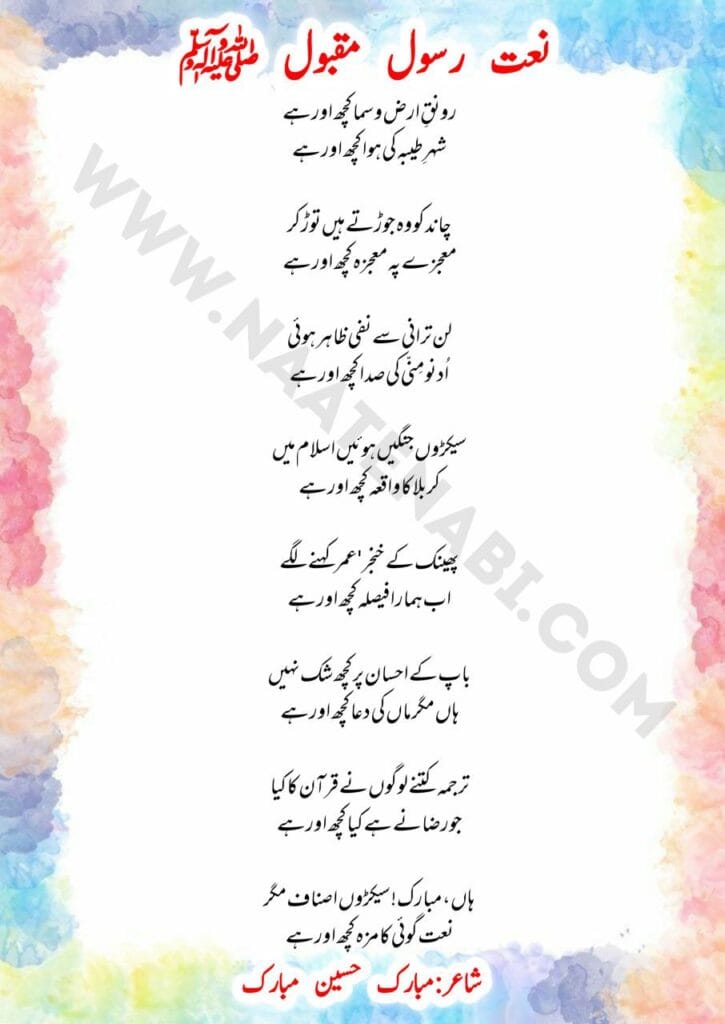 نعت رسول مقبول ﷺ
رونقِ ارض و سما کچھ اور ہے
شہرِ طیبہ کی ہوا کچھ اور ہے
چاند کو وہ جوڑتے ہیں توڑ کر
معجزے پہ معجزہ کچھ اور ہے
لن ترانی سے نفی ظاہر ہوئی
اُدنو مِنّی کی صدا کچھ اور ہے
سیکڑوں جنگیں ہوئیں اسلام میں
کربلا کا واقعہ کچھ اور ہے
پھینک کے خنجر 'عمر کہنے لگے
اب ہمارا فیصلہ کچھ اور ہے
باپ کے احسان پر کچھ شک نہیں
ہاں مگر ماں کی دعا کچھ اور ہے
ترجمہ کتنے لوگوں نے قرآن کا کیا
جو رضا نے ہے کیا کچھ اور ہے
ہاں، مبارک! سیکڑوں اصناف مگر
نعت گوئی کا مزہ کچھ اور ہے
شاعر: مبارک حسین مبارک
WWW.NAATENABI.COM